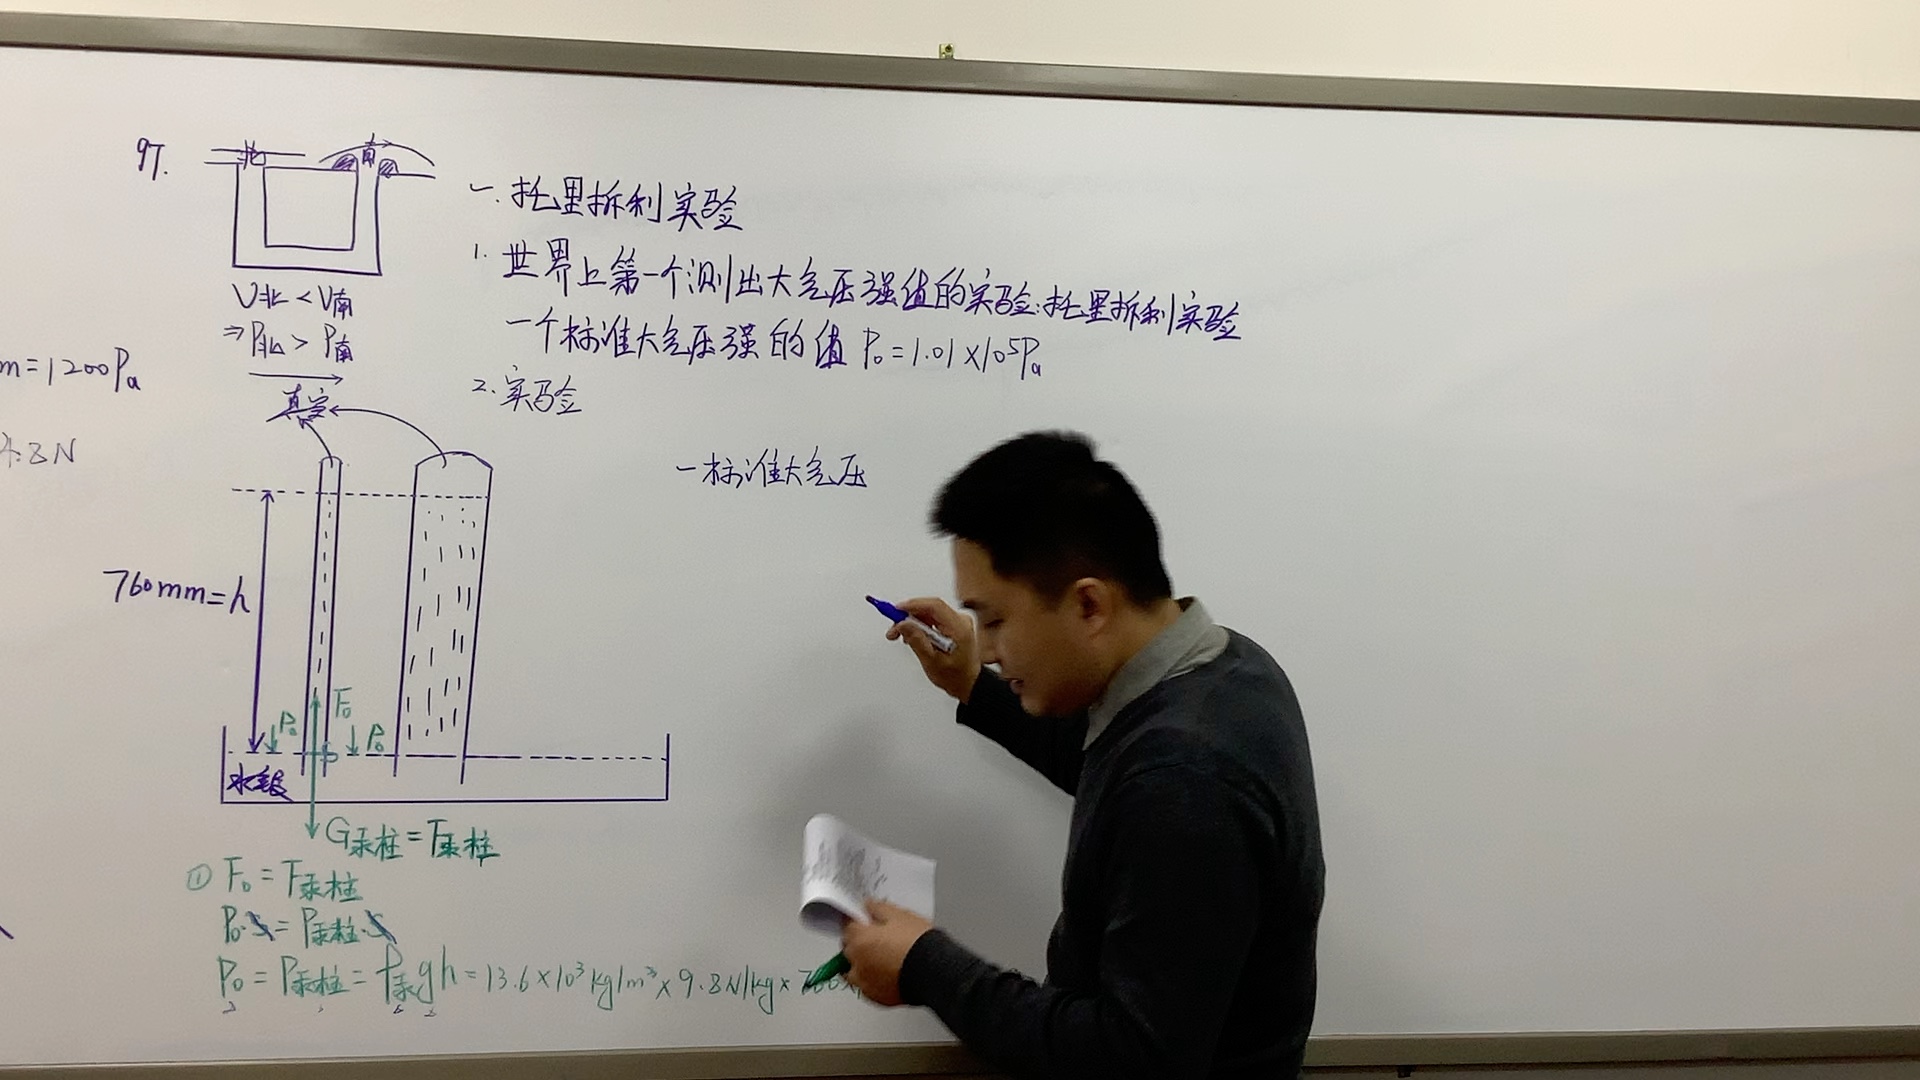 97.
北 南
V北<V南
⇒P北>P南
m=1200Pa
4.8N
真空
一.托里拆利实验
1.世界上第一个测出大气压强值的实验:托里拆利实验
一个标准大气压强的值 P₀=1.01×10⁵Pa
2.实验
一标准大气压
760mm=h
P₀ F₀ P₀
水银
G汞柱=F汞柱
① F₀=F汞柱
P₀·S=P汞柱·S
P₀=P汞柱=ρ汞gh=13.6×10³kg/m³×9.8N/kg×